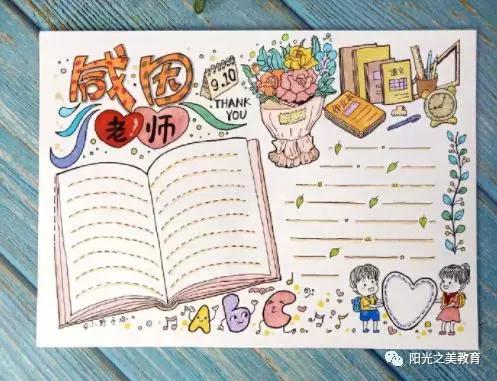 感恩
9.10
THANK
YOU
老师
语文
Abc
阳光之美教育